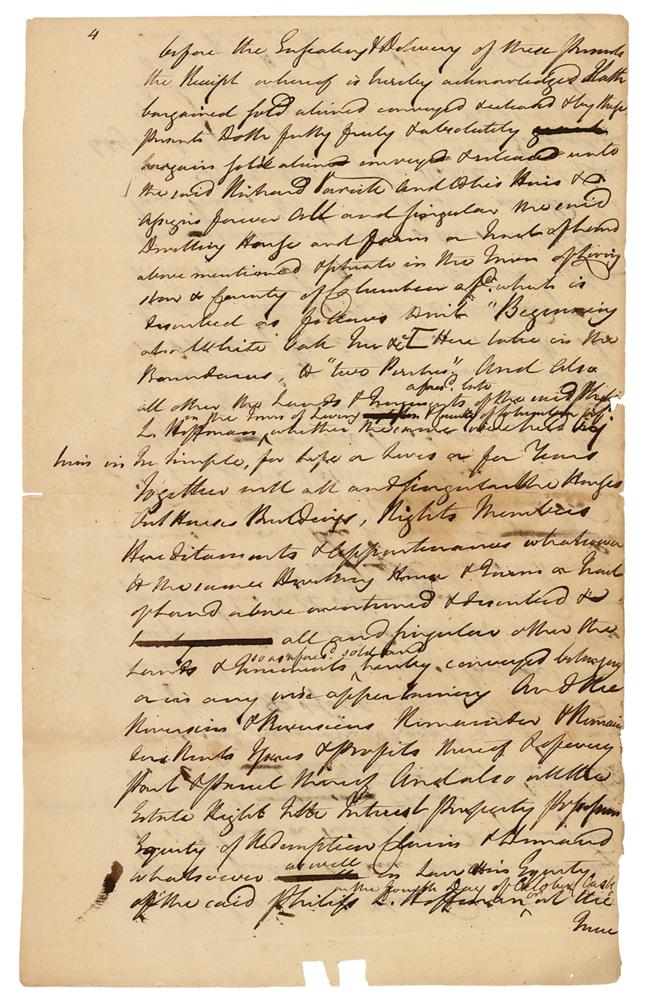 4
before the Ensealing & Delivery of these presents
the Receipt whereof is hereby acknowledged Hath
bargained sold aliened conveyed & released & by these
presents Doth fully freely & absolutely
bargain sell alien convey & release unto
the said Richard and & his Heirs &
assigns forever All and singular the said
Dwelling House and Farm or Tract of Land
above mentioned & situate in the Town of Living
ston & County of Columbia afsd. which is
described as follows to wit "Beginning
at a White Oak Tree &c [Here take in the
Boundaries, to "two Perches"] And also
afsd. late
all other the Lands & Tenements of the said Philip
in the Town of & County of Columbia
L. Hoffman, whether the same were held by
him in Fee Simple, for Life or Lives or for Years
Together with all and singular the Houses
Out Houses Buildings, Rights Members
Hereditaments & appurtenances whatsoever
to the same Dwelling House & Farm or Tract
of Land above mentioned & described &
all and singular other the
so as aforesd. sold and
Lands & Tenements hereby conveyed belonging
or in any wise appertaining And the
Reversion & Reversions Remainder & Remain
ders Rents Issues & Profits thereof & of every
part & parcel thereof And also all the
Estate Right Title Interest Property Possession
Equity of Redemption Claim & Demand
whatsoever as well in Law as in Equity
on the fourth Day of October last
of the said Philip L. Hoffman at the
Time